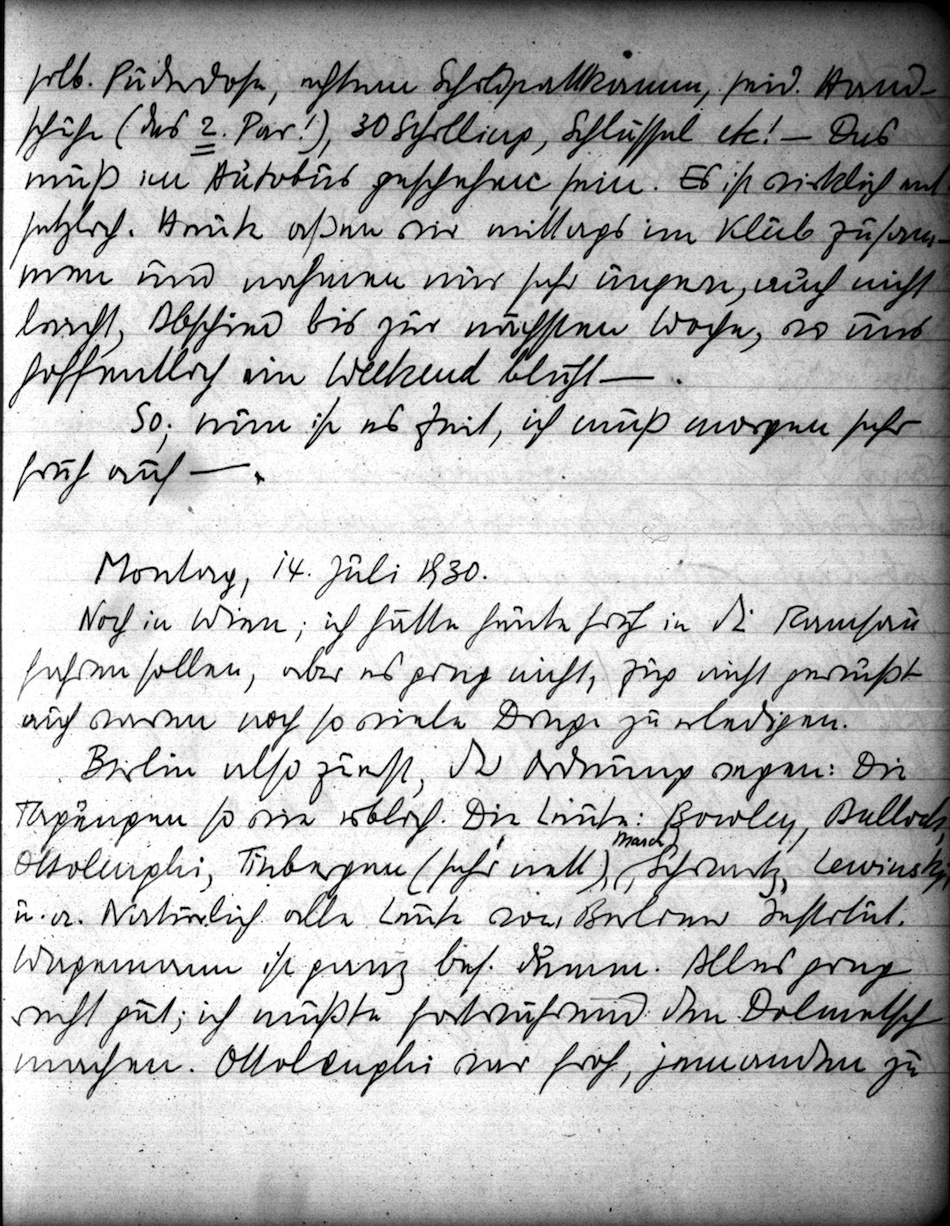 silb. Puderdose, echtem Schildpattkamm, seid. Hand-
schuhe (das 2. Paar!), 30 Schilling, Schlüssel etc! — Das
muß im Autobus geschehen sein. Es ist wirklich ent
setzlich. Heute aßen wir mittags im Klub zusam-
men und nahmen nur sehr ungern, auch nicht
leicht, Abschied bis zur nächsten Woche, wo uns
hoffentlich ein Weekend blüht — .
So, nun ist es Zeit, ich muß morgen sehr
früh auf — .
Montag, 14. Juli 1930.
Noch in Wien; ich hätte heute früh in die Ramsau
fahren sollen, aber es ging nicht, Zug nicht gewußt
auch waren noch so viele Dinge zu erledigen.
Berlin also zuerst, der Ordnung wegen: Die
Tagungen so wie üblich. Die Leute: Bowley, Bullock,
Ottolenghi, Tinbergen (sehr nett), March, Schwartz, Lewinsky,
u. a. Natürlich alle Leute vom Berliner Institut.
Wagemann ist ganz bes. dumm. Alles ging
recht gut; ich mußte fortwährend den Dolmetsch
machen. Ottolenghi war froh, jemanden zu